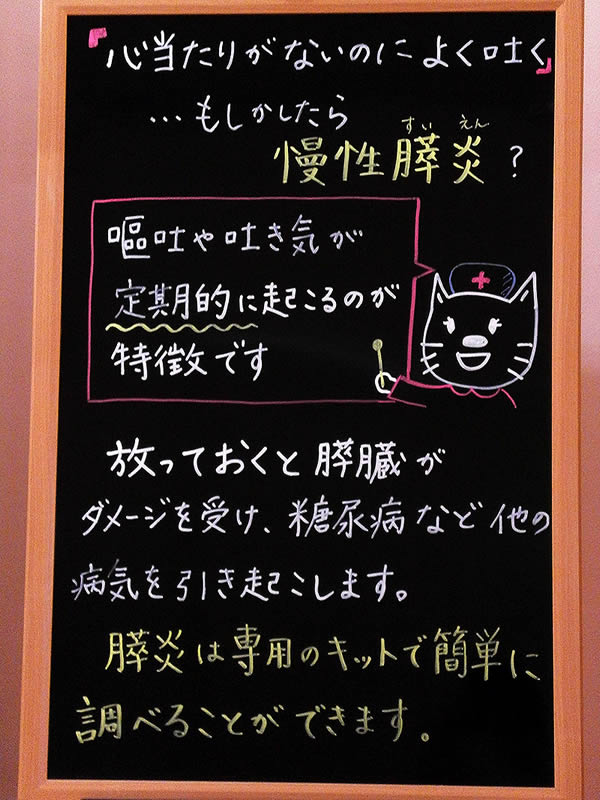 『心当たりがないのによく吐く』
…もしかしたら
すい えん
慢性膵炎?
嘔吐や吐き気が
定期的に起こるのが
特徴です
放っておくと膵臓が
ダメージを受け、糖尿病など他の
病気を引き起こします。
膵炎は専用のキットで簡単に
調べることができます。